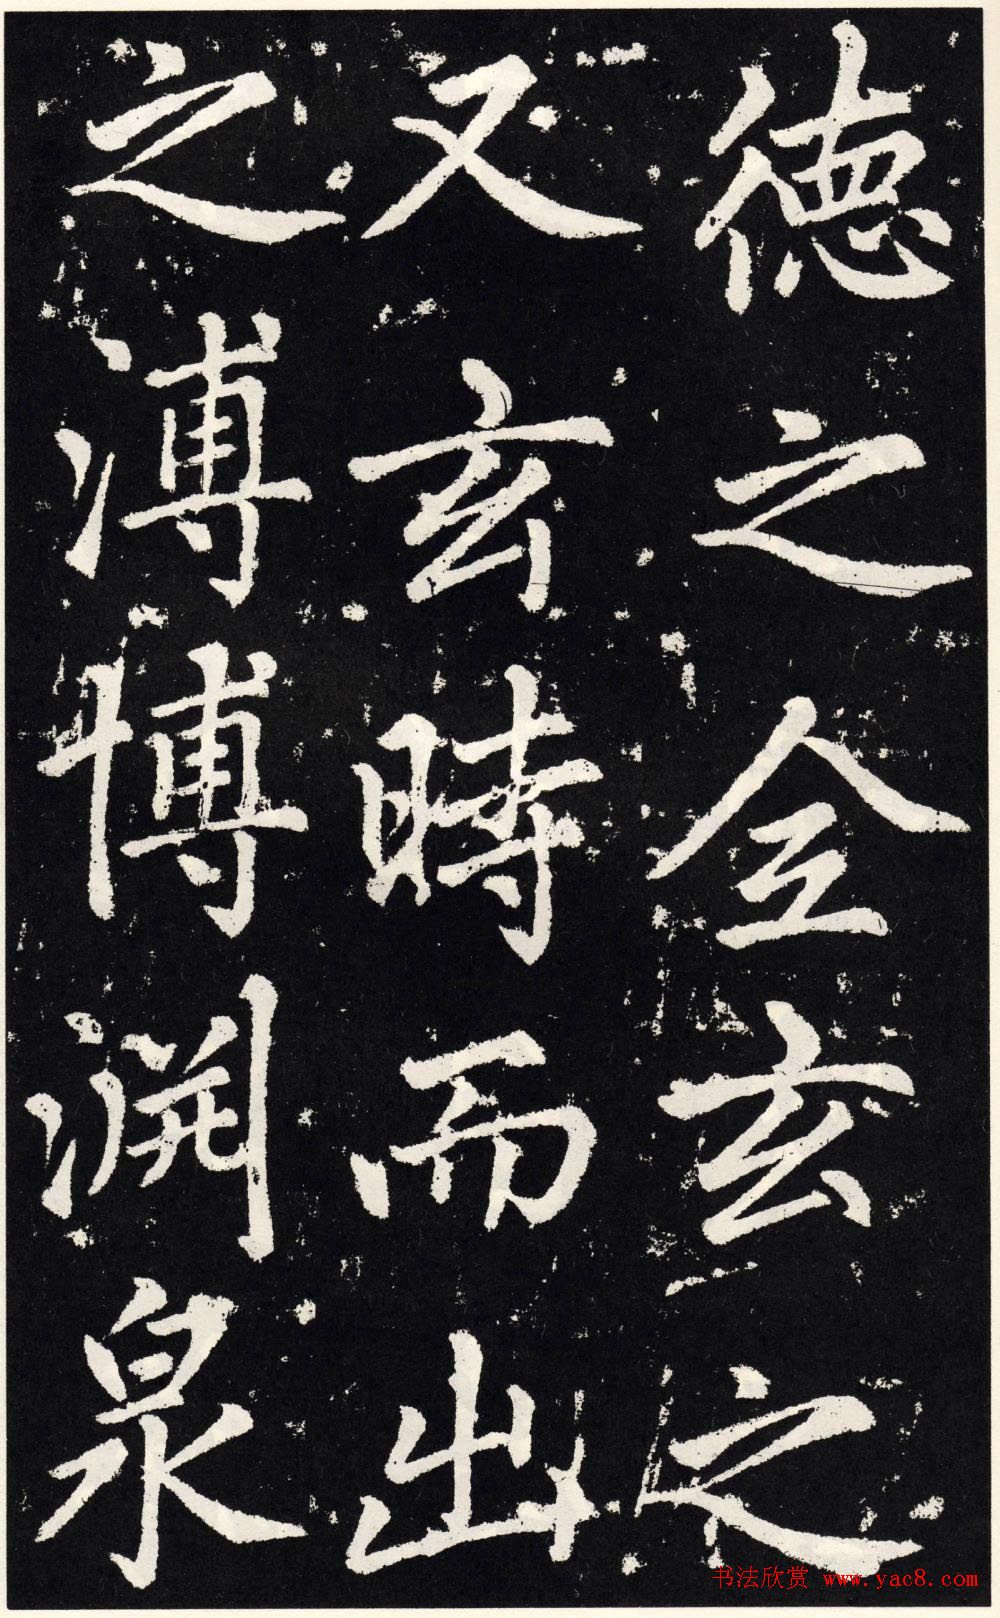 德之全玄之
又玄時而出
之溥博渊泉
书法欣赏 www.yac8.com